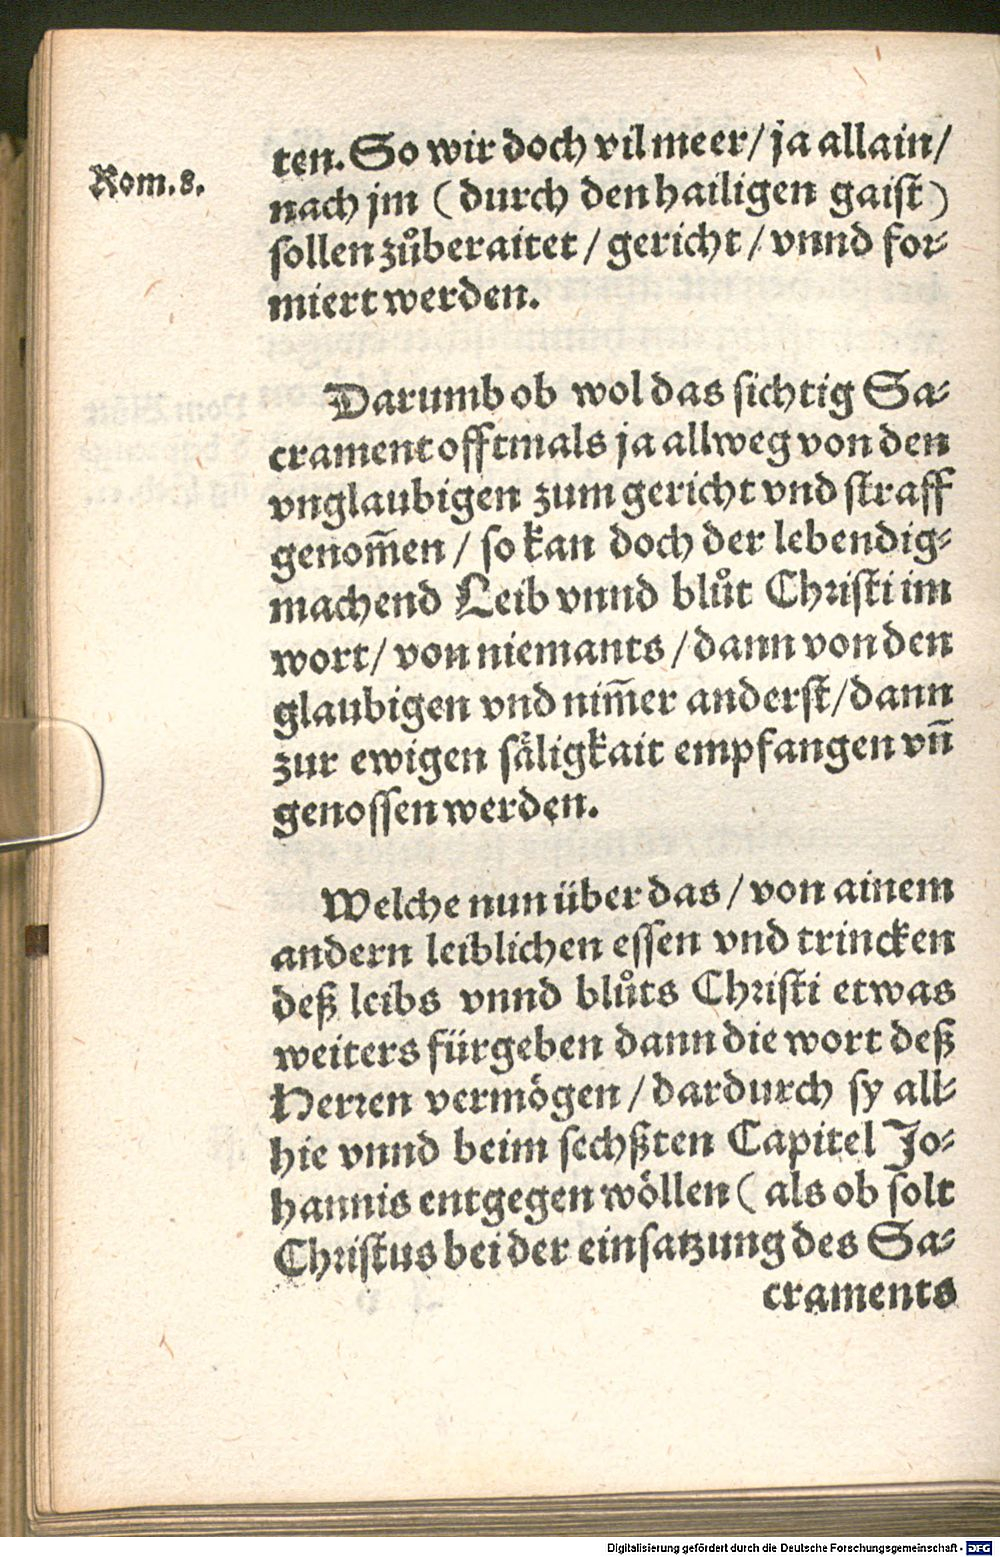 Rom. 8.
ten. So wir doch vil meer/ ja allain/
nach jm ( durch den hailigen gaist )
sollen zůberaitet / gericht / vnnd for⸗
miert werden.
Darumb ob wol das sichtig Sa⸗
crament offtmals ja allweg von den
vnglaubigen zum gericht vnd straff
genom̃en / so kan doch der lebendig⸗
machend Leib vnnd blůt Christi im
wort/ von niemants / dann von den
glaubigen vnd nim̃er anderst/ dann
zur ewigen säligkait empfangen vñ
genossen werden.
Welche nun über das / von ainem
andern leiblichen essen vnd trincken
deß leibs vnnd blůts Christi etwas
weiters fürgeben dann die wort deß
Herren vermögen / dardurch sy all⸗
hie vnnd beim sechßten Capitel Jo⸗
hannis entgegen wöllen ( als ob solt
Christus bei der einsatzung des Sa⸗
craments
Digitalisierung gefördert durch die Deutsche Forschungsgemeinschaft - DFG